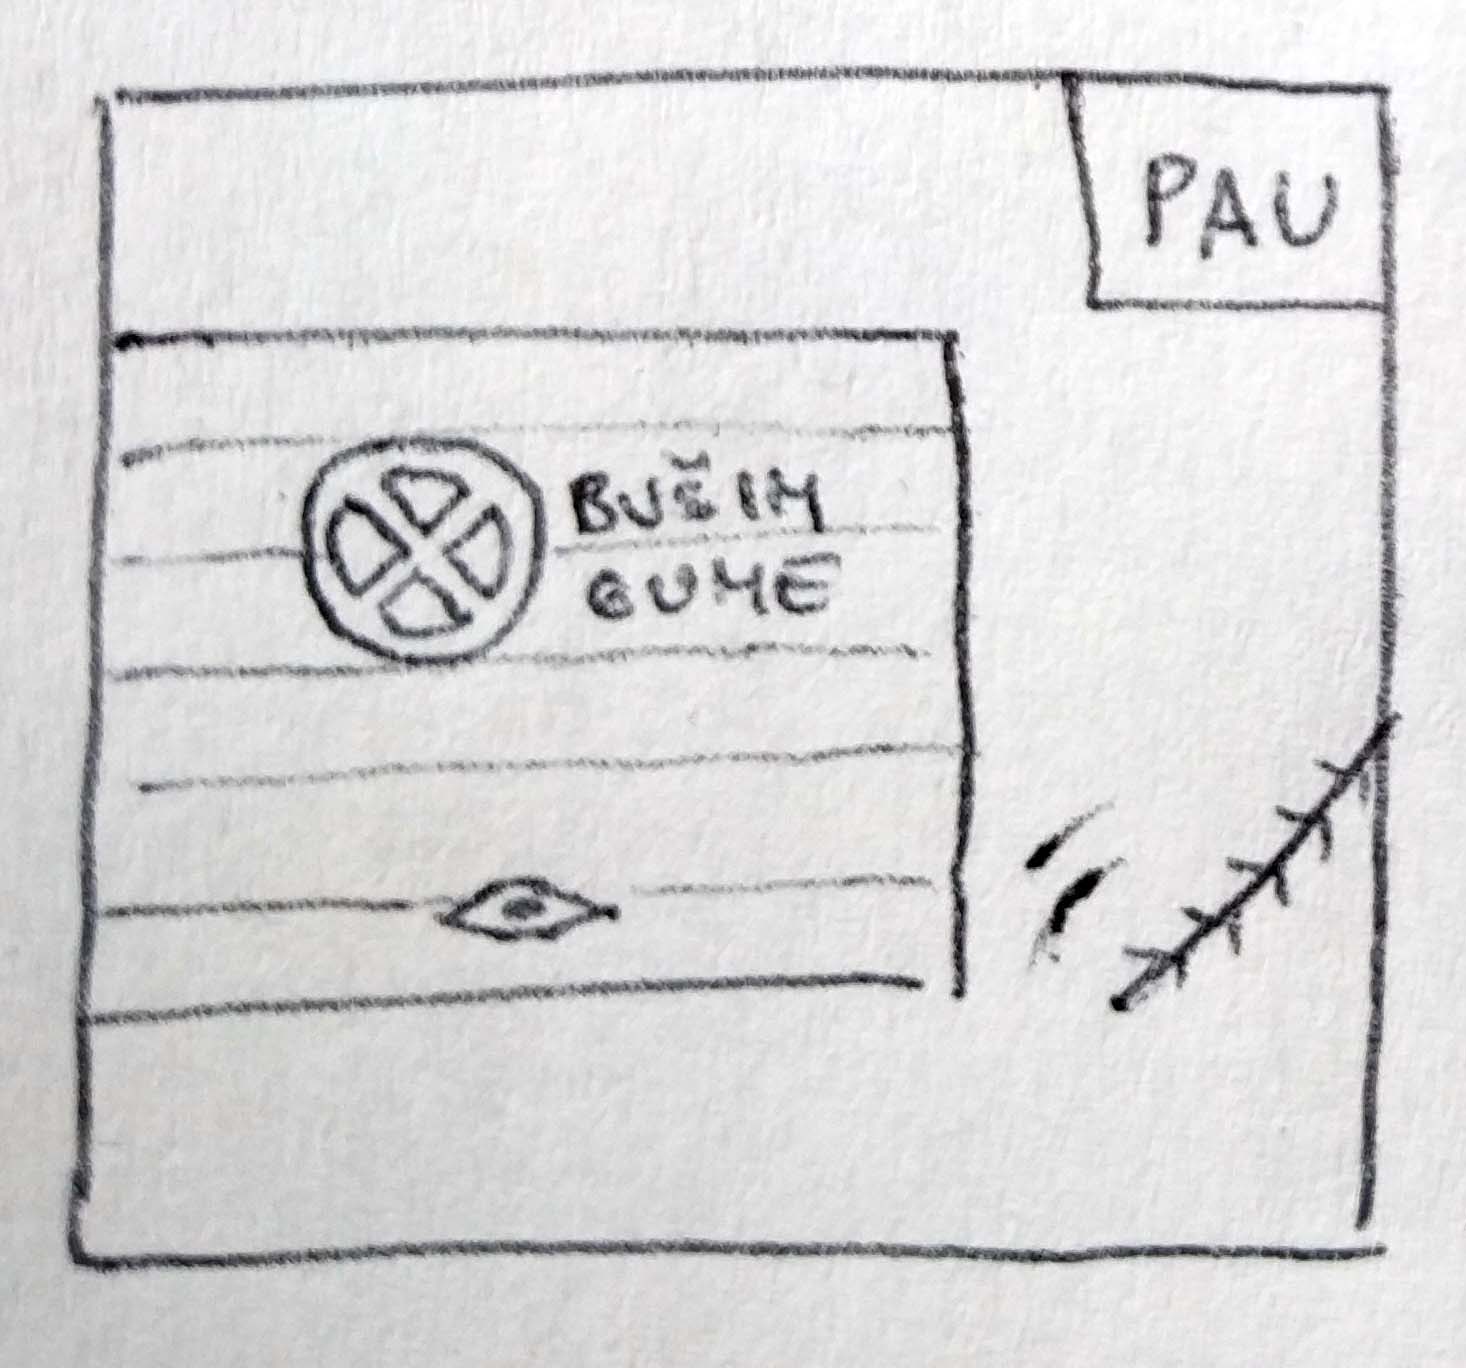 PAU
BUŠIM
GUME